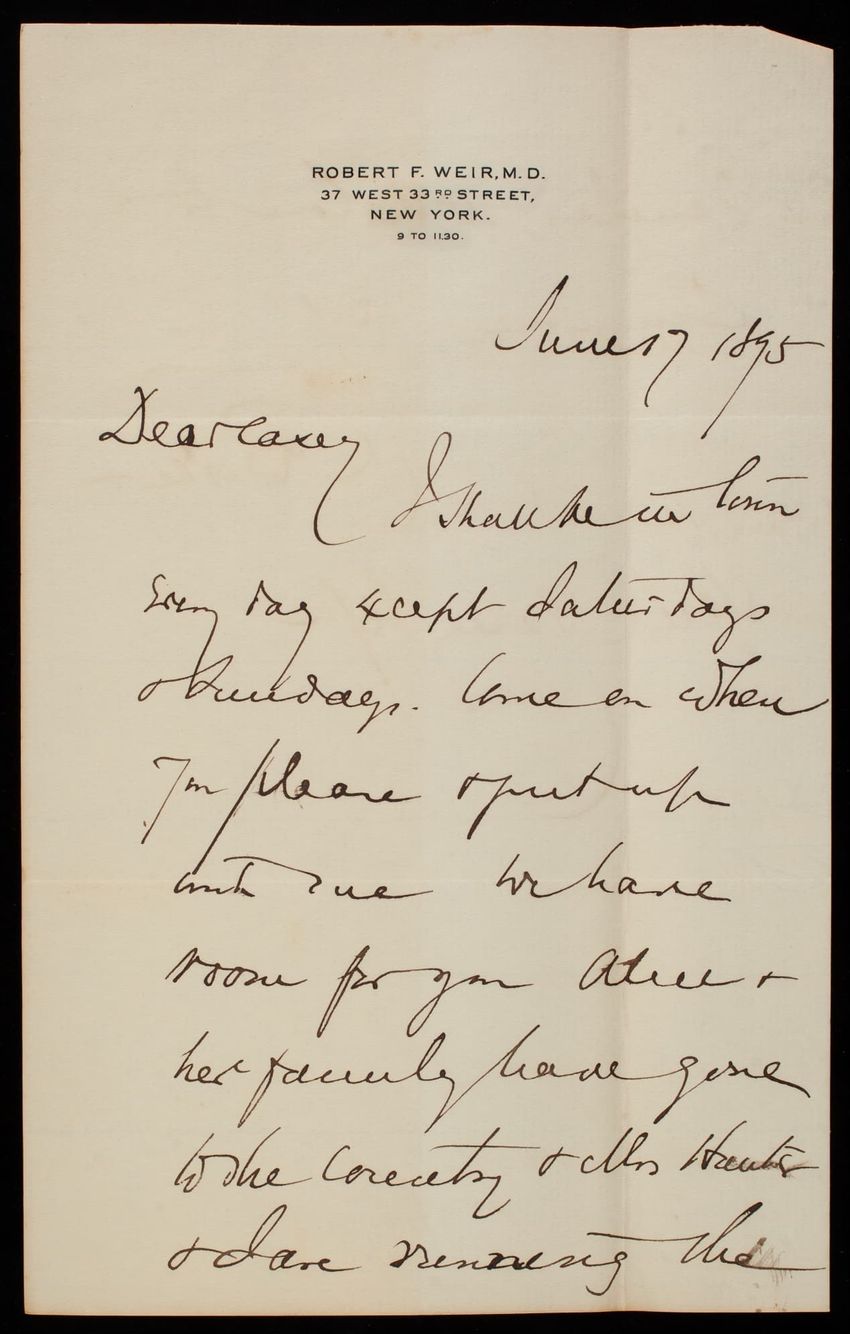 ROBERT F. WEIR, M.D.
37 WEST 33RD STREET,
NEW YORK.
9 TO 11.30.
June 17 1895
Dear Casey
I shall be in town
Every day except Saturdays
& Sundays. Come on when
you please & put up
with me We have
room for you Alice &
her family have gone
to the Country & Mrs Hunter
& I are running the